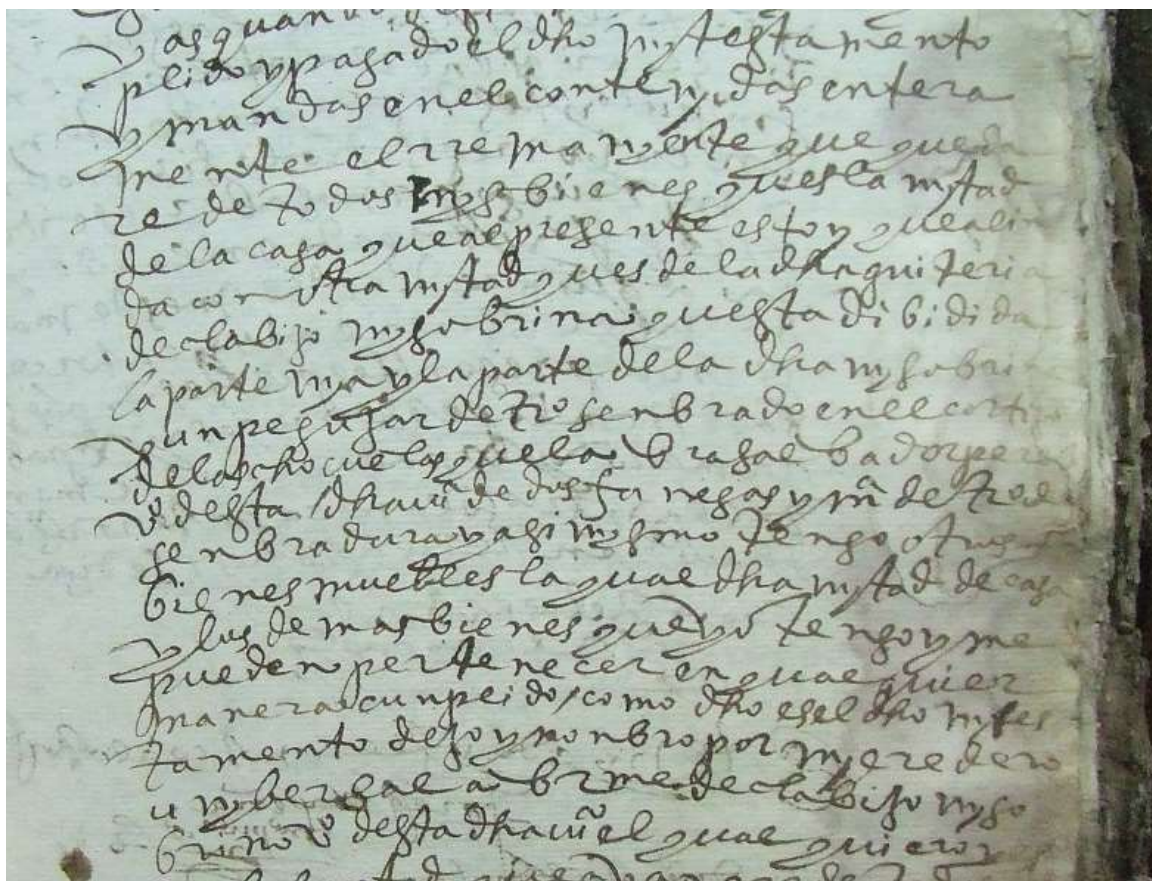 plido y pagado el dho my testamento
y mandas en el contenydas entera
mente el rremanyente que queda
re de todos mys bienes ques la mytad
de la casa que al presente estoy que alin
da con otra mytad ques de la dha quiteria
de clabijo my sobrina questa dibidida
la parte mya y la parte de la dha my sobri
y un pegujar de trigo senbrado en el cortijo
de la
vº desta dha uiª de dos fanegas y mª de trigo
senbradura y asi mysmo tengo otros
bienes muebles la qual dha mytad de casa
y los demas bienes que yo tengo y me
pueden pertenecer en qualquier
manera cunplido como dho es el dho mytes
tamento dejo y nonbro por myeredero
unybersal a br me de clabijo myso
brino vº desta dha uiª el qual quiero y